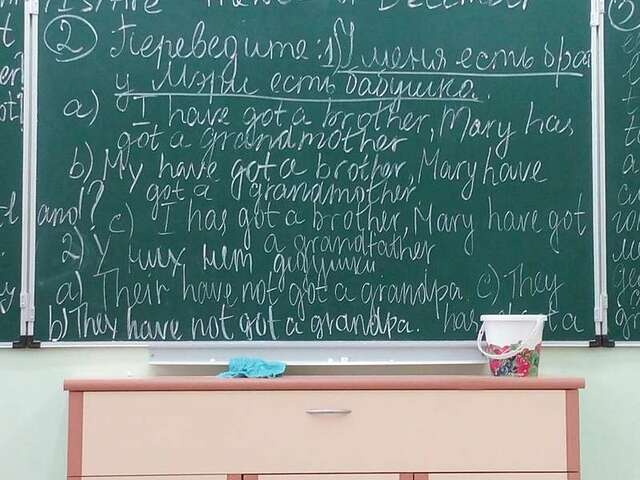 December
② Переведите: 1) У меня есть бра
у Мэри есть бабушка.
a) I have got a brother, Mary has
got a grandmother
b) My have got a brother, Mary have
got a grandmother
and?
c) I has got a brother, Mary have got
a grandfather
2) У них нет дедушки
a) Their have not got a grandpa. c) They
b) They have not got a grandpa. has a